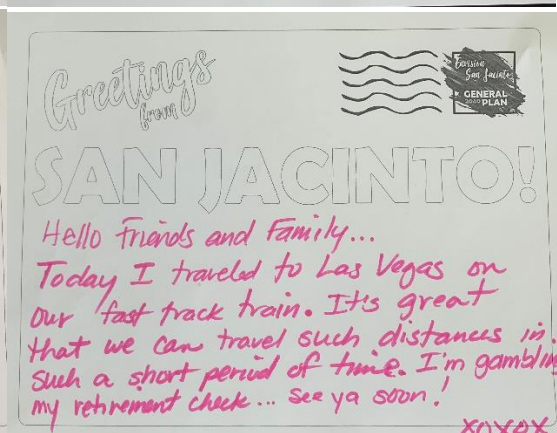 Greetings
from
Envision
San Jacinto
GENERAL
2040 PLAN
SAN JACINTO!
Hello Friends and Family...
Today I traveled to Las Vegas on
our fast track train. It's great
that we can travel such distances in
such a short period of time. I'm gamblin
my retirement check... see ya soon!
xoxox